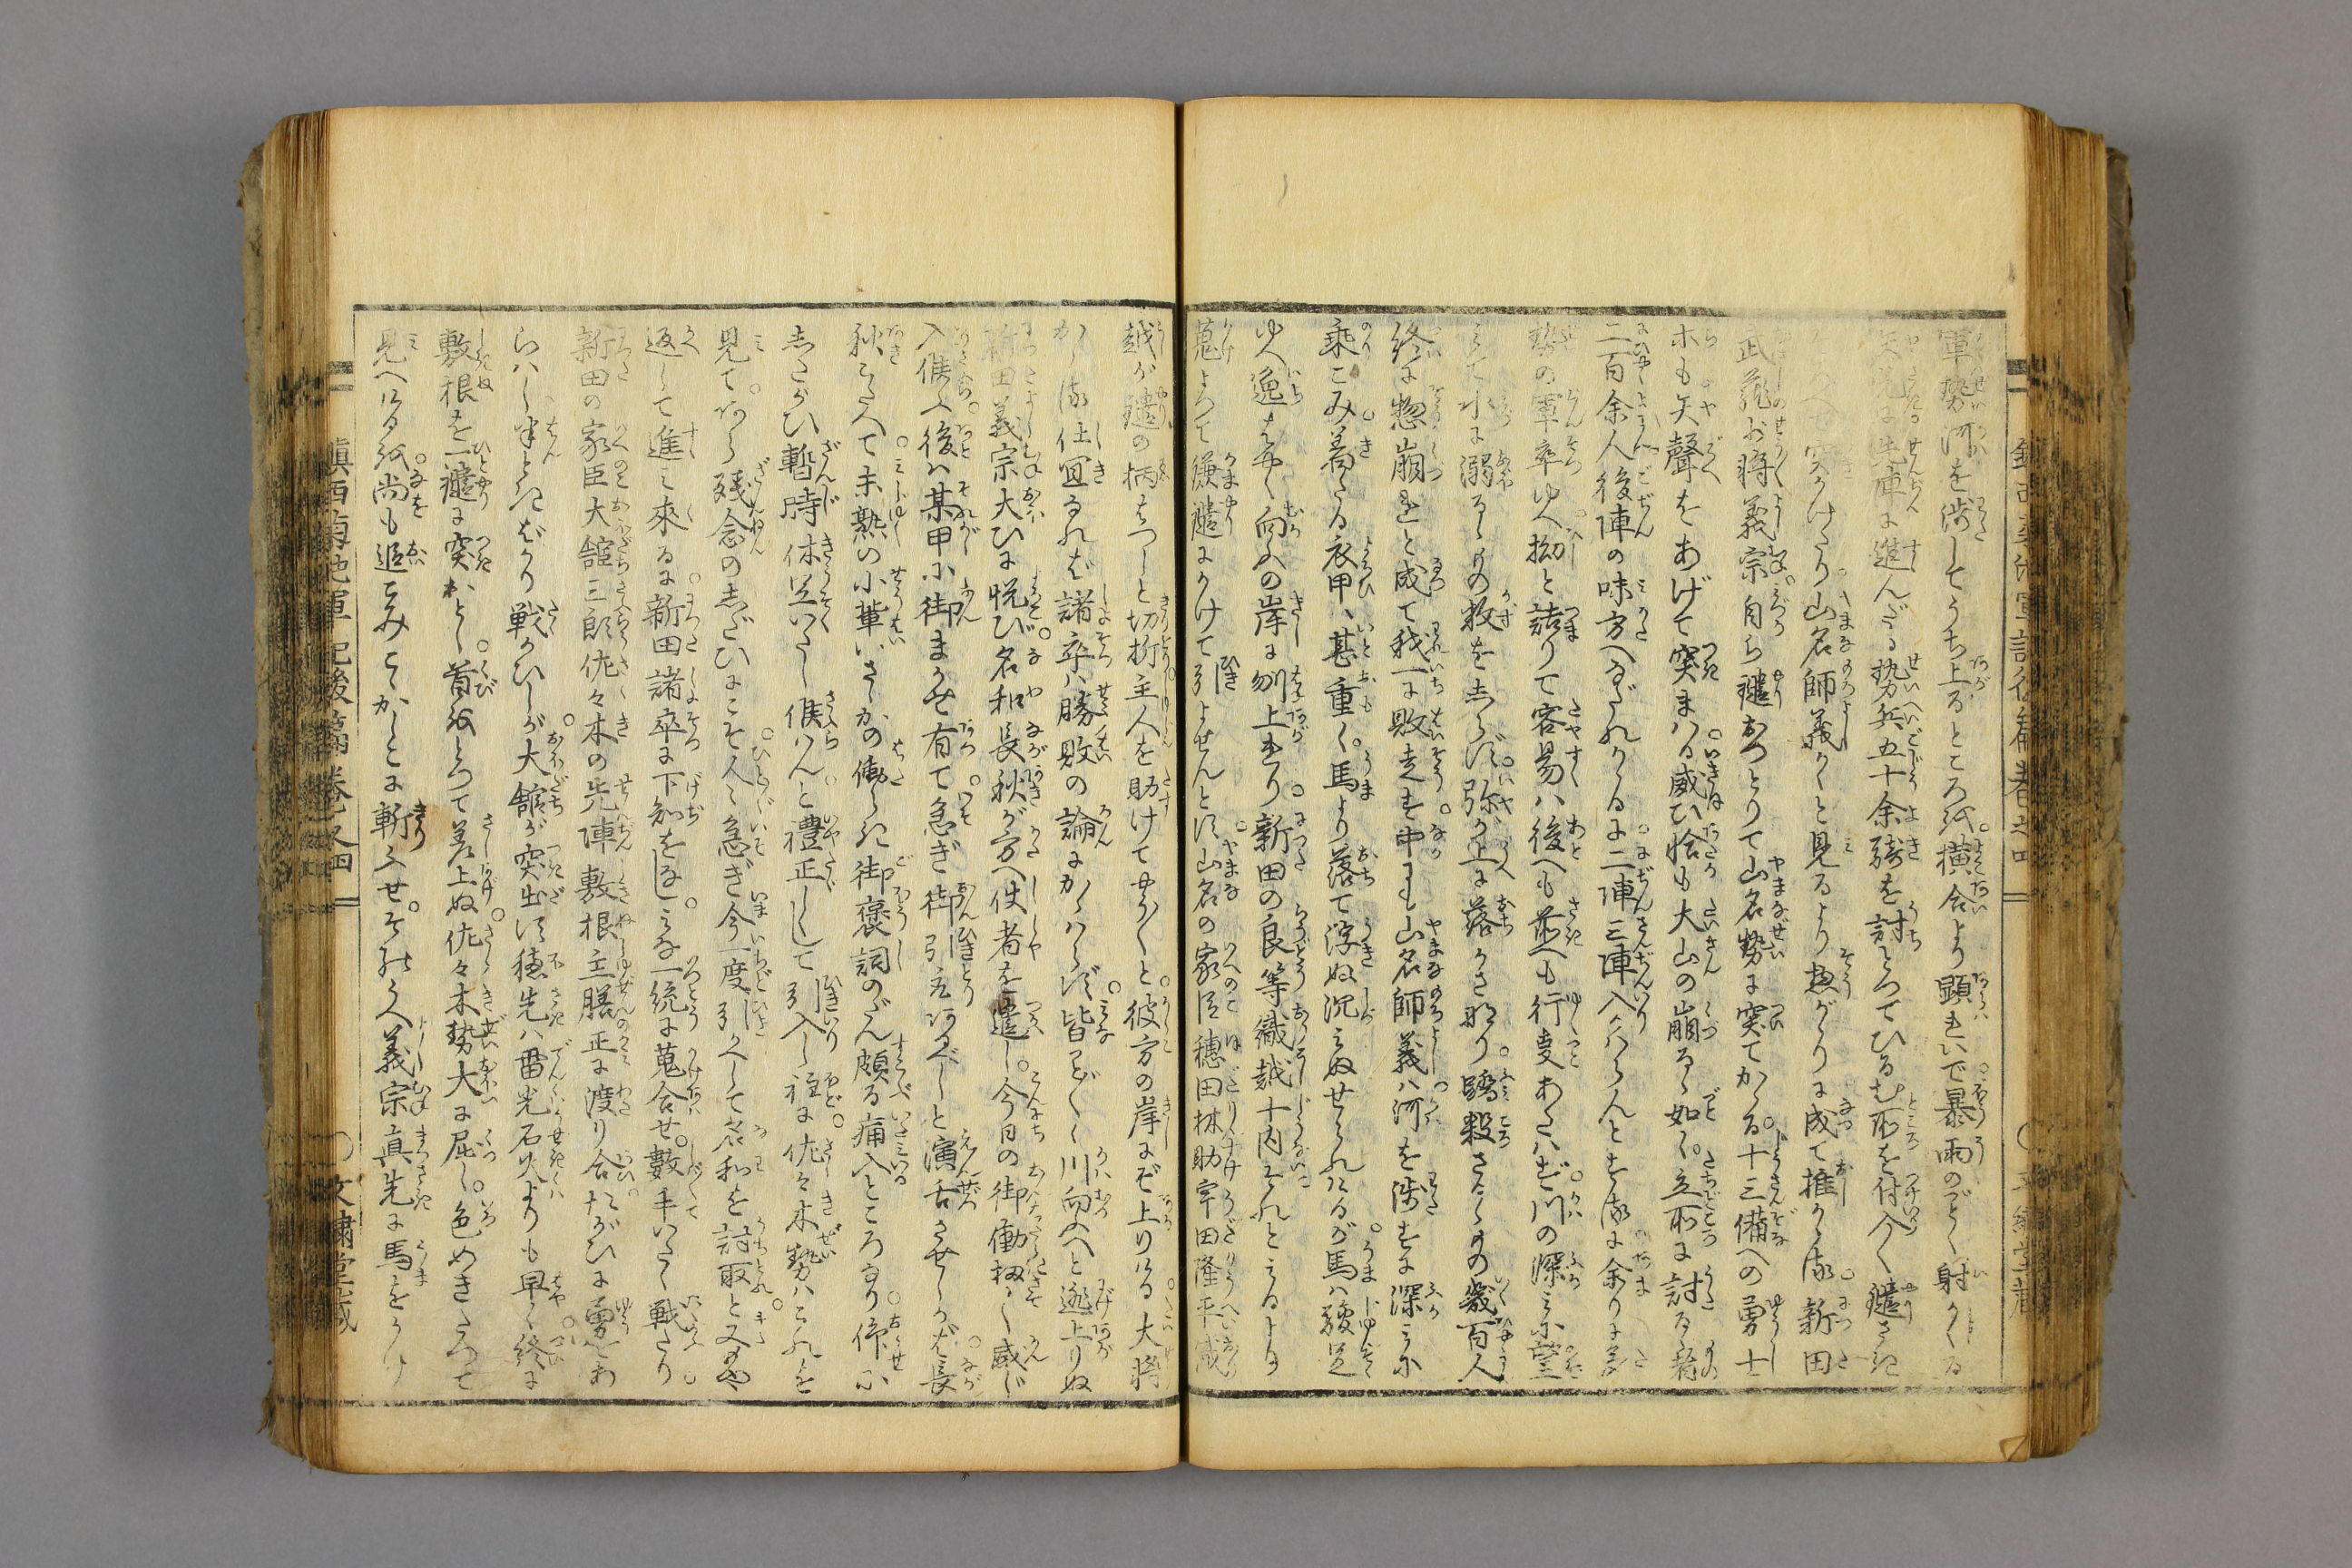 軍勢河を渉してうち上るところを横合より顕れいで暴雨のごく射かくる
先陣に進んだる勢兵五十余騎を討とつてひるむ所を付入く鑓さき
突かけたり山名師義かくと見るより惣がゝりに成て推かゝる新田
武蔵少将義宗自ら鑓おつとりて山名勢に突てかゝる十三備への勇士
ホも矢聲をあげて突まはる威ひ恰も大山の崩るゝ如く立所に討るゝ者
二百余人後陣の味方へなだれかゝるに二陣三陣入かはらんとする余りに多
勢の軍卒ゆへ拗と詰りて容易は後へも前へも行度あたはず川の深みに望
みて水に溺るゝもの数をしらず弥が上に落かさなり踏殺さるゝもの幾百人
終に惣崩れと成て我一に敗走す中にも山名師義は河を渉すに深みに
乗こみ着たる衣甲は甚重く馬より落て浮ぬ沉みぬせられけるが馬は駿足
ゆへ逸はやく向ふの岸に刎上れり新田の良等織越十内それとみるより
走よつて鎌鑓にかけて引よせんとす山名の家臣穂田林助宇田隆平織
越が鑓の柄をはつしと切折主人を助けてやう〳〵と彼方の岸にぞ上りける大将
かゝる仕宜なれば諸卒は勝敗の論にかゝはらず皆ことごとく川向へと逃上りぬ
新田義宗大ひに悦び名和長秋が方へ使者を遣し今日の御働扨々感じ
入候ふ後は某甲に御まかせ有て急ぎ御引取あるべしと演舌させしかば長
秋こたへて未熟の小輩いさゝかの働らき御褒詞のだん頗る痛入ところなり仰に
したがひ暫時休足いたし候はんと禮正しくして引入し程に佐々木勢はこれを
見てあら残念のしだひにこそ人々急ぎ今一度引かへして名和を討取と又もや
返して進み來るに新田諸卒に下知をなしみな一統に蒐合せ数手いたく戦たり
新田の家臣大舘三郎佐々木の先陣敷根主膳正に渡り合たがひに勇をあ
らはし半ときばかり戦かひしが大舘が突出す穂先は電光石火よりも早く終に
敷根を一鑓に突おとし首をとつて差上ぬ佐々木勢大に屈し色めきたつて
見へけるを尚も追こみてかしこに斬ふせそのうへ義宗真先に馬をかけ
鎮西菊池軍記後篇巻之四
文繍堂蔵